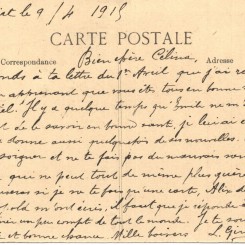 et le 9/4 1915
CARTE POSTALE
Correspondance Adresse
Bien chère Célina,
ds à ta lettre du 1er Avril que j'ai re
apprenant que vous êtes tous en bonne
Il y a quelque temps qu'Emile ne m'
de le savoir en bonne santé, je lui ai
donne aussi quelquefois de ses nouvelles
soigner et ne te fais pas du mauvais
qui ne peut tout de même plus
si je ne te fais qu'une carte,
m'ont écrit, il faut que je réponde à
un peu compte de tout le monde. Je te
et bonne chance. Mille baisers L.